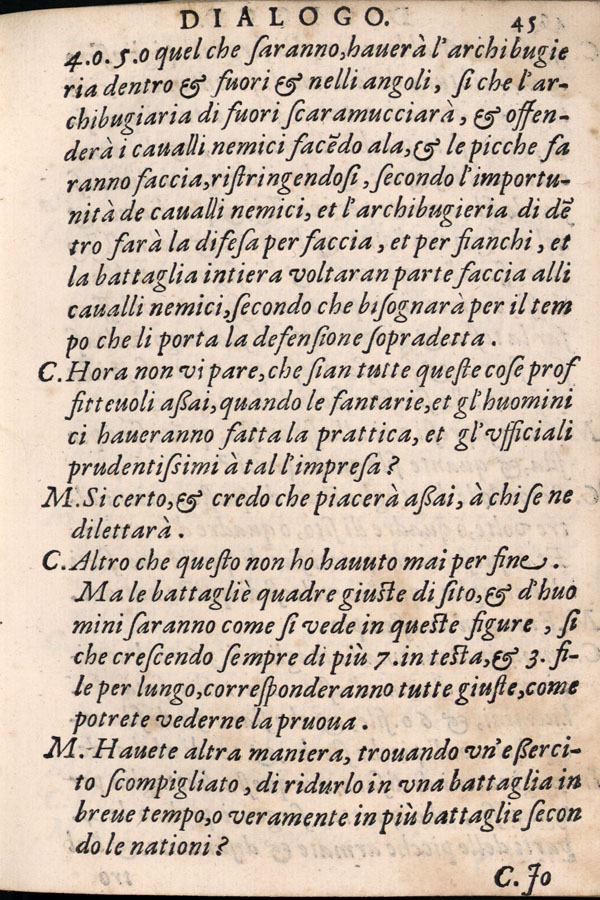 DIALOGO. 45
4.0.5.0 quel che ſaranno,hauerà l'archibugie
ria dentro & fuori & nelli angoli, ſi che l'ar-
chibugiaria di fuori ſcaramucciarà, & offen-
derà i caualli nemici facẽdo ala,& le picche fa
ranno faccia,riſtringendoſi, ſecondo l'importu-
nità de caualli nemici, et l'archibugieria di dẽ
tro farà la difeſa per faccia, et per fianchi, et
la battaglia intiera voltaran parte faccia alli
caualli nemici,ſecondo che biſognarà per il tem
po che li porta la defenſione ſopradetta.
C. Hora non vi pare,che ſian tutte queſte coſe prof
fitteuoli aßai,quando le fantarie,et gl'huomini
ci haueranno fatta la prattica, et gl'vfficiali
prudentiſſimi à tal l'impreſa?
M. Si certo,& credo che piacerà aßai, à chi ſe ne
dilettarà.
C. Altro che queſto non ho hauuto mai per fine.
Ma le battagliè quadre giuſte di ſito,& d'huo
mini ſaranno come ſi vede in queſte figure, ſi
che creſcendo ſempre di più 7. in teſta,& 3. fi-
le per lungo,correſponderanno tutte giuſte,come
potrete vederne la pruoua.
M. Hauete altra maniera, trouando vn'eßerci-
to ſcompigliato, di ridurlo in vna battaglia in
breue tempo,o veramente in più battaglie ſecon
do le nationi?
C. Io